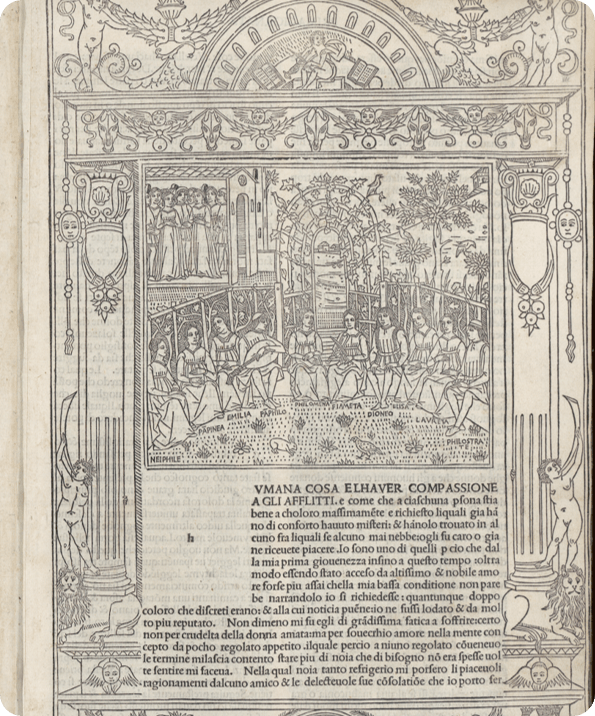 NEIPHILE PAPINEA EMILIA PAPHILO PHILOMENA FIAMETA DIONEO ELISA LAVRETA PHILOSTRATE
VMANA COSA ELHAVER COMPASSIONE
A GLI AFFLITTI. e come che a ciaschuna psona stia
bene a choloro massimamēte e richiesto liquali gia há
no di conforto hauuto misteri: & hánolo trouato in al
h
cuno fra liquali se alcuno mai nebbe: ogli fu caro o gia
ne riceuete piacere. Io sono uno di quelli p cio che dal
la mia prima giouenezza insino a questo tempo: oltra
modo essendo stato acceso da altissimo & nobile amo
re forse piu assai chella mia bassa conditione non pare
be narrandolo io si richiedesse: quantunque doppo
coloro che discreti erano: & alla cui noticia puēne: io ne fussi lodato & da mol
to piu reputato. Non dimeno mi fu egli di grādissima fatica a soffrire: certo
non per crudelta della donna amata: ma per souerchio amore nella mente con
cepto da pocho regolato appetito. ilquale percio a niuno regolato cōueneuo
le termine milascia contento stare piu di noia che di bisogno nō era spesse uol
te sentire mi faceua. Nella qual noia tanto refrigerio mi porsero li piaceuoli
ragionamenti dalcuno amico & le delecteuole sue cōsolatiōe che io porto fer